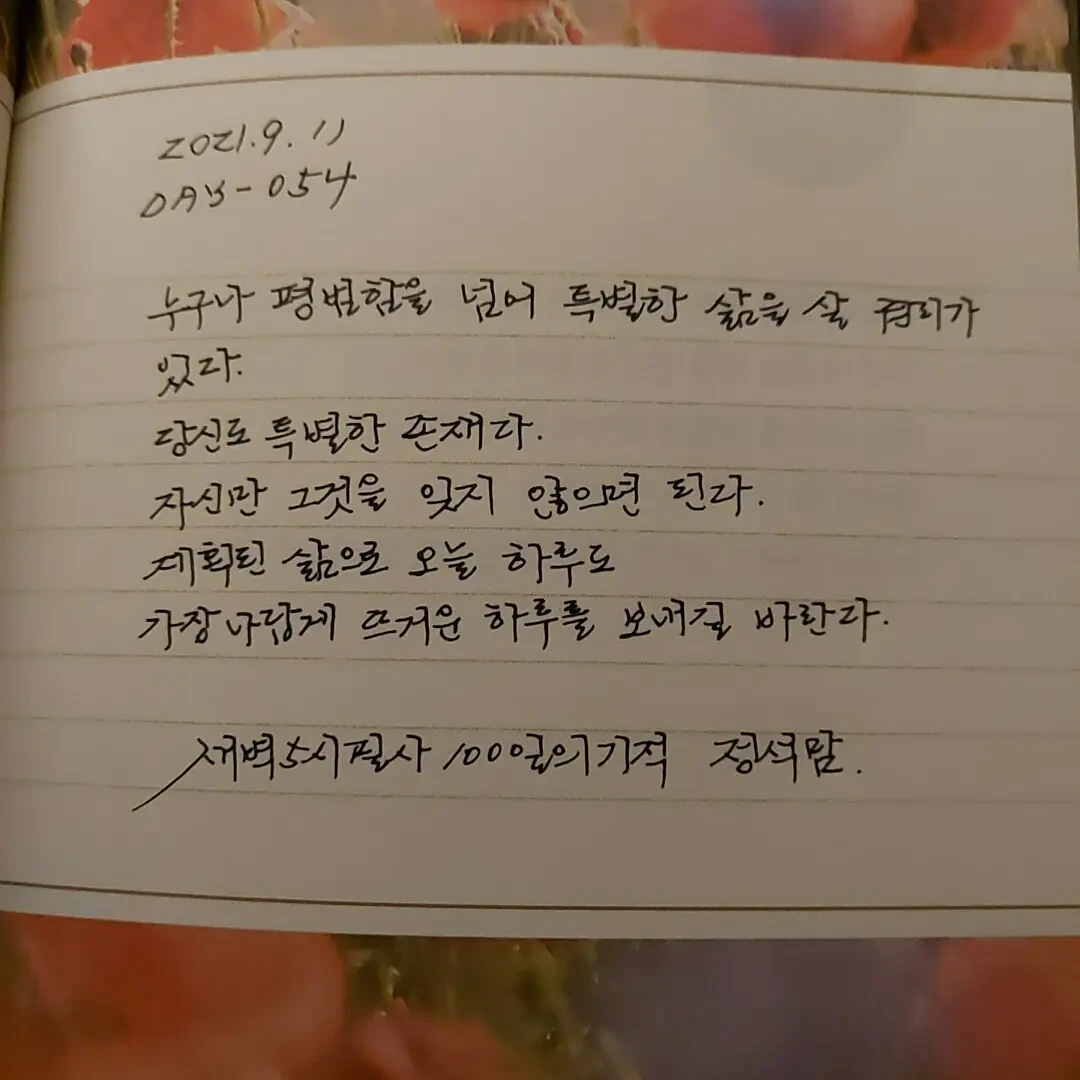 2021.9.11
DAY-054
누구나 평범함을 넘어 특별한 삶을 살 권리가
있다.
당신도 특별한 존재다.
자신만 그것을 잊지 않으면 된다.
계획된 삶으로 오늘 하루도
가장 나답게 뜨거운 하루를 보내길 바란다.
새벽5시필사 100일의기적 정석맘.